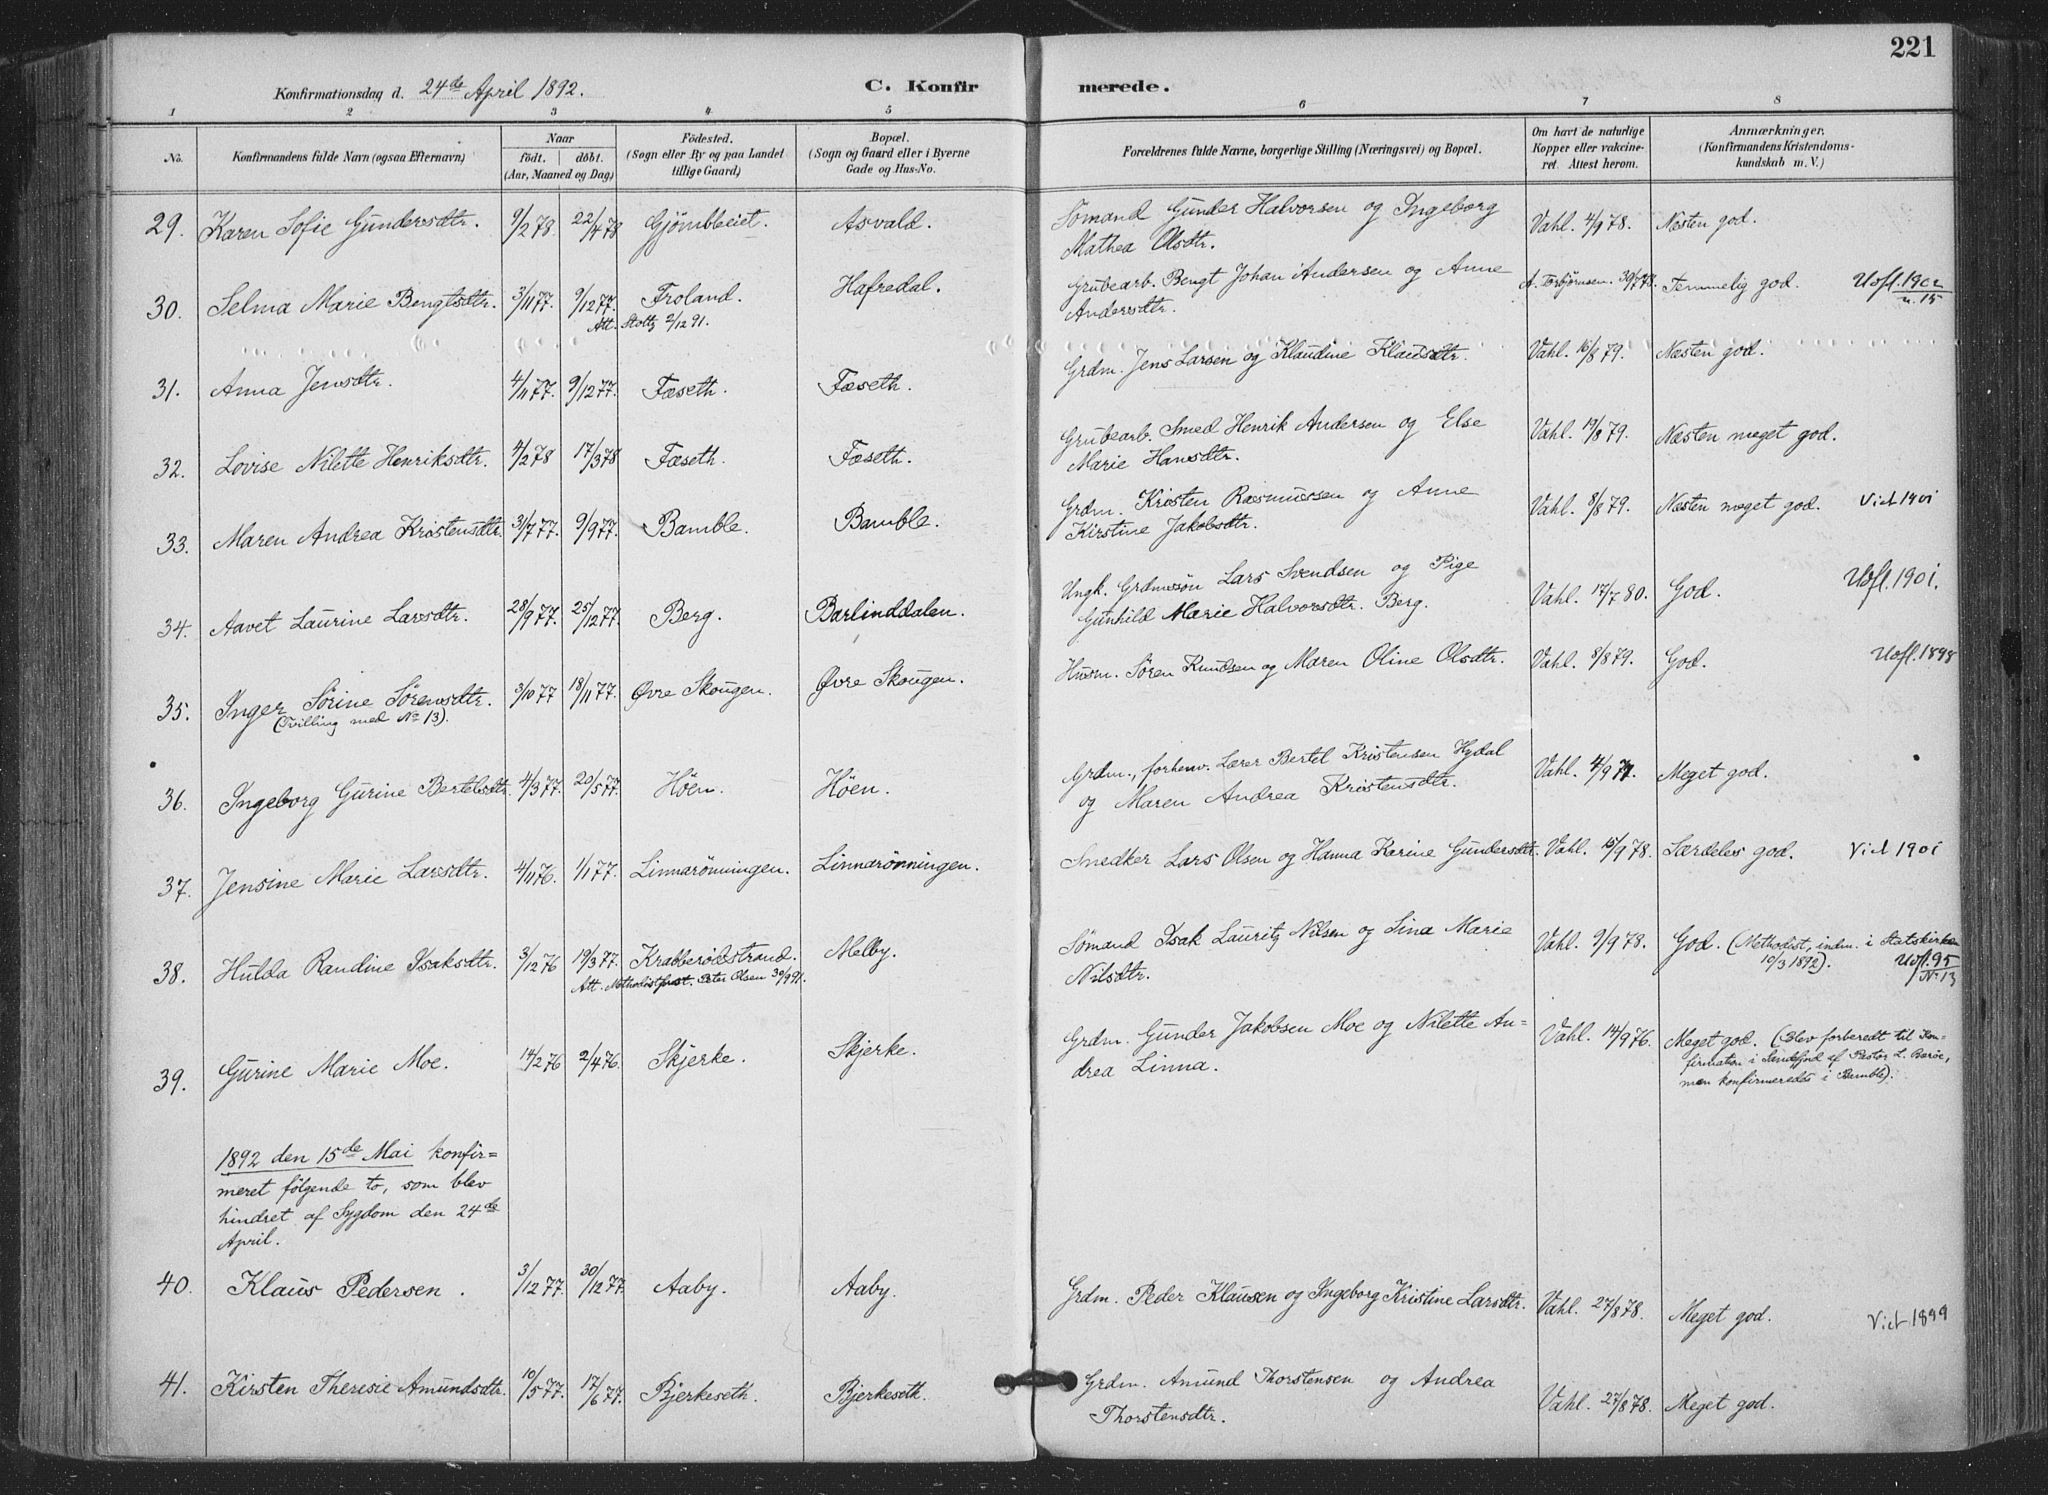 221
Konfirmationsdag d. 24de April 1892.
C. Konfir
merede.
1 2 3 4 5 6 7 8
No.
Konfirmandens fulde Navn (ogsaa Efternavn)
Naar
födt. döbt.
(Aar, Maaned og Dag)
Födested.
(Sogn eller By og paa Landet
tillige Gaard)
Bopæl.
(Sogn og Gaard eller i Byerne
Gade og Hus-No.
Forældrenes fulde Navne, borgerlige Stilling (Næringsvei) og Bopæl.
Om havt de naturlige
Kopper eller vakcine-
ret. Attest herom.
Anmærkninger.
(Konfirmandens Kristendoms-
kundskab m. V.)
29. Karen Sofie Gundersdtr. 9/2 78. 22/4 78 Gjømbleiet. Asvald. Sømand Gunder Halvorsen og Ingeborg Vahl. 4/9 78. Næsten god.
Mathea Olsdtr.
30. Selma Marie Bengtsdtr. 3/11 77. 9/12 77. Froland. Hafredal. Grubearb. Bengt Johan Andersen og Anne A. Torbjørnsen. 30/7 78. Temmelig god. Uofl. 1902
Att. Stoltz 2/12 91. Andersdtr. n. 15
31. Anna Jensdtr. 4/11 77. 9/12 77. Fæseth. Fæseth. Grdm. Jens Larsen og Klaudine Klausdtr. Vahl. 16/8 79. Næsten god.
32. Lovise Nilette Henriksdtr. 4/2 78 17/3 78 Fæseth. Fæseth. Grubearb. Smed Henrik Andersen og Else Vahl. 19/8 79. Næsten meget god.
Marie Hansdtr.
33. Maren Andrea Kristensdtr. 3/7 77. 9/9 77. Bamble. Bamble. Grdm. Kristen Rasmussen og Anne Vahl. 8/8 79. Næsten meget god. Viet 1901
Kirstine Jakobsdtr.
34. Aavet Laurine Larsdtr. 28/9 77. 25/12 77. Berg. Barlinddalen. Ungk. Grdmssön Lars Svendsen og Pige Vahl. 17/7 80. God. Uofl. 1901.
Gunhild Marie Halvorsdtr. Berg.
35. Inger Sörine Sörensdtr. 3/10 77 18/11 77. Øvre Skougen. Øvre Skougen. Husm. Sören Knudsen og Maren Oline Olsdtr. Vahl. 8/8 79. God. Uofl. 1898
(Tvilling med No 13).
36. Ingeborg Gurine Bertelsdtr. 4/3 77. 20/5 77. Höen. Höen. Grdm., forhenv. Lærer Bertel Kristensen Hydal Vahl. 4/9 71. Meget god.
og Maren Andrea Kristensdtr.
37. Jensine Marie Larsdtr. 4/11 76. 1/1 77. Linnarönningen. Linnarönningen. Snedker Lars Olsen og Hanna Karine Gundersdtr. Vahl. 15/9 78. Særdeles god. Viet 1901
38. Hulda Randine Isaksdtr. 3/12 76 19/3 77. Krabberödstrand. Melby. Sömand Isak Lauritz Nilsen og Lina Marie Vahl. 9/9 78. God. (Methodist, indm. i Statskirken
Att. Methodistprest. Peter Olsen 30/9 91. Nilsdtr. 10/3 1892). Uofl. 95
No 13
39. Gurine Marie Moe. 14/2 76 2/4 76. Skjerke. Skjerke. Grdm. Gunder Jakobsen Moe og Nilette An= Vahl. 14/9 76. Meget god. (Blev forberedt til Kon=
drea Linna. firmation i Sandefjord af Pastor L. Barøe,
men konfirmeredes i Bamble).
1892 den 15de Mai konfir=
meret følgende to, som blev
hindret af Sygdom den 24de
April.
40. Klaus Pedersen. 3/12 77. 30/12 77. Aaby. Aaby. Grdm. Peder Klausen og Ingeborg Kristine Larsdtr. Vahl. 27/8 78. Meget god. Viet 1899
41. Kirsten Theresie Amundsdtr. 10/5 77. 17/6 77. Bjerkeseth. Bjerkeseth. Grdm. Amund Thorstensen og Andrea Vahl. 27/8 78. Meget god.
Thorstensdtr.